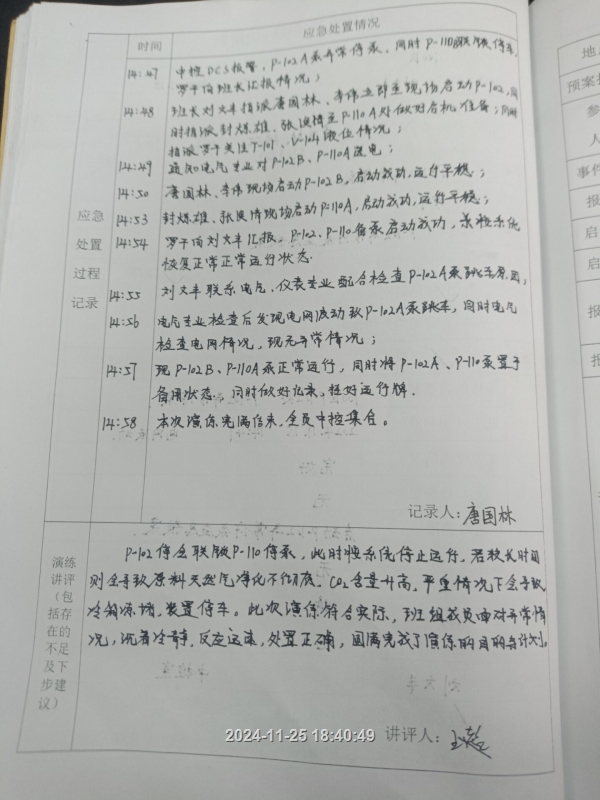 应急处置情况
时间
14:47 中控DCS报警，P-102A泵异常停泵，同时P-110联锁停车，
罗于向班长汇报情况；
14:48 班长刘文丰指派唐国林、李伟立即至现场启动P-102，同
时指派封炼雄、张 至P-110A处做好启机准备；同时
指派罗于关注T-101、V-104液位情况；
14:49 通知电气专业对P-102B、P-110A送电；
14:50 唐国林、李伟现场启动P-102B，启动成功，运行平稳；
14:53 封炼雄、张 现场启动P-110A，启动成功，运行平稳；
14:54 罗于向刘文丰汇报，P-102、P-110备泵启动成功，系统
恢复正常正常运行状态.
14:55 刘文丰联系电气、仪表专业配合检查P-102A泵跳车原因，
14:56 电气专业检查后发现电网波动致P-102A泵跳车，同时电气
检查电网情况，现无异常情况；
14:57 现P-102B、P-110A泵正常运行，同时将P-102A、P-110泵置于
备用状态.同时做好记录，挂好运行牌.
14:58 本次演练完满结束，全员中控集合。
应急
处置
过程
记录
记录人：唐国林
演练
讲评
（包
括存
在的
不足
及下
步建
议）
P-102停会联锁P-110停泵，此时 系统停止运行，若较长时间
则会导致原料天然气净化不彻底，CO2含量升高，严重情况下会导致
冷箱冻堵，装置停车。此次演练符合实际，班组成员面对异常情
况，沉着冷静，反应迅速，处置正确，圆满完成了演练的目的与计划。
讲评人：
2024-11-25 18:40:49
地
预案
参
人
事件
报
启
启
报
报